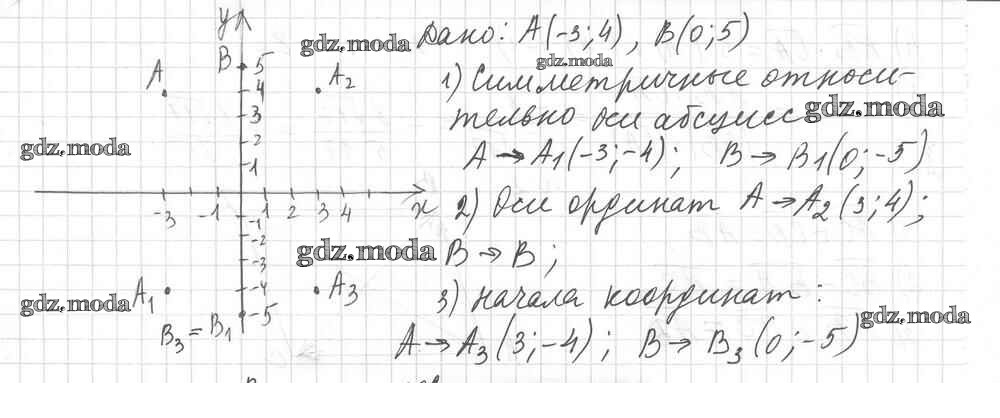 y
Дано: A(-3;4), B(0;5)
gdz.moda
B 5
A
A2
4
gdz.moda
1) Симметричные относи-
тельно оси абсцисс
gdz.moda
3
2
gdz.moda
1
A → A1(-3;-4); B → B1(0;-5)
-3 -1 1 2 3 4 x
2) Оси ординат A → A2(3;4);
-1
-2
gdz.moda
B → B;
-3
A1
-4
A3
3) начала координат:
gdz.moda
-5
gdz.moda
B3 = B1
A → A3(3;-4); B → B3(0;-5)